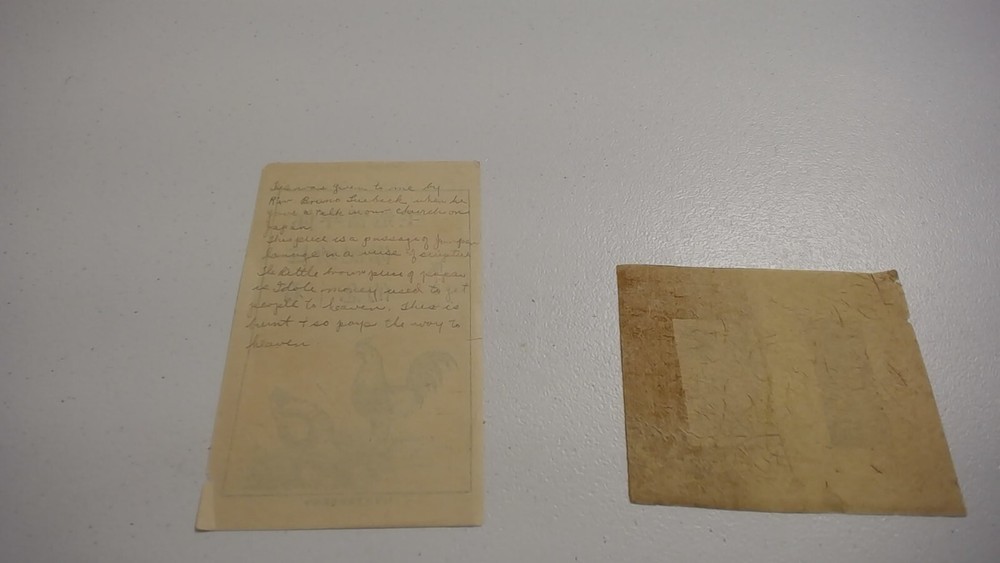 given to me by
Rev Bruno when he
gave a talk in our Church on
Japan.
This piece is a passage of
in a verse of scripture
The little brown piece of paper
is Idole money used to get
people to heaven. This is
burnt + so pays the way to
heaven